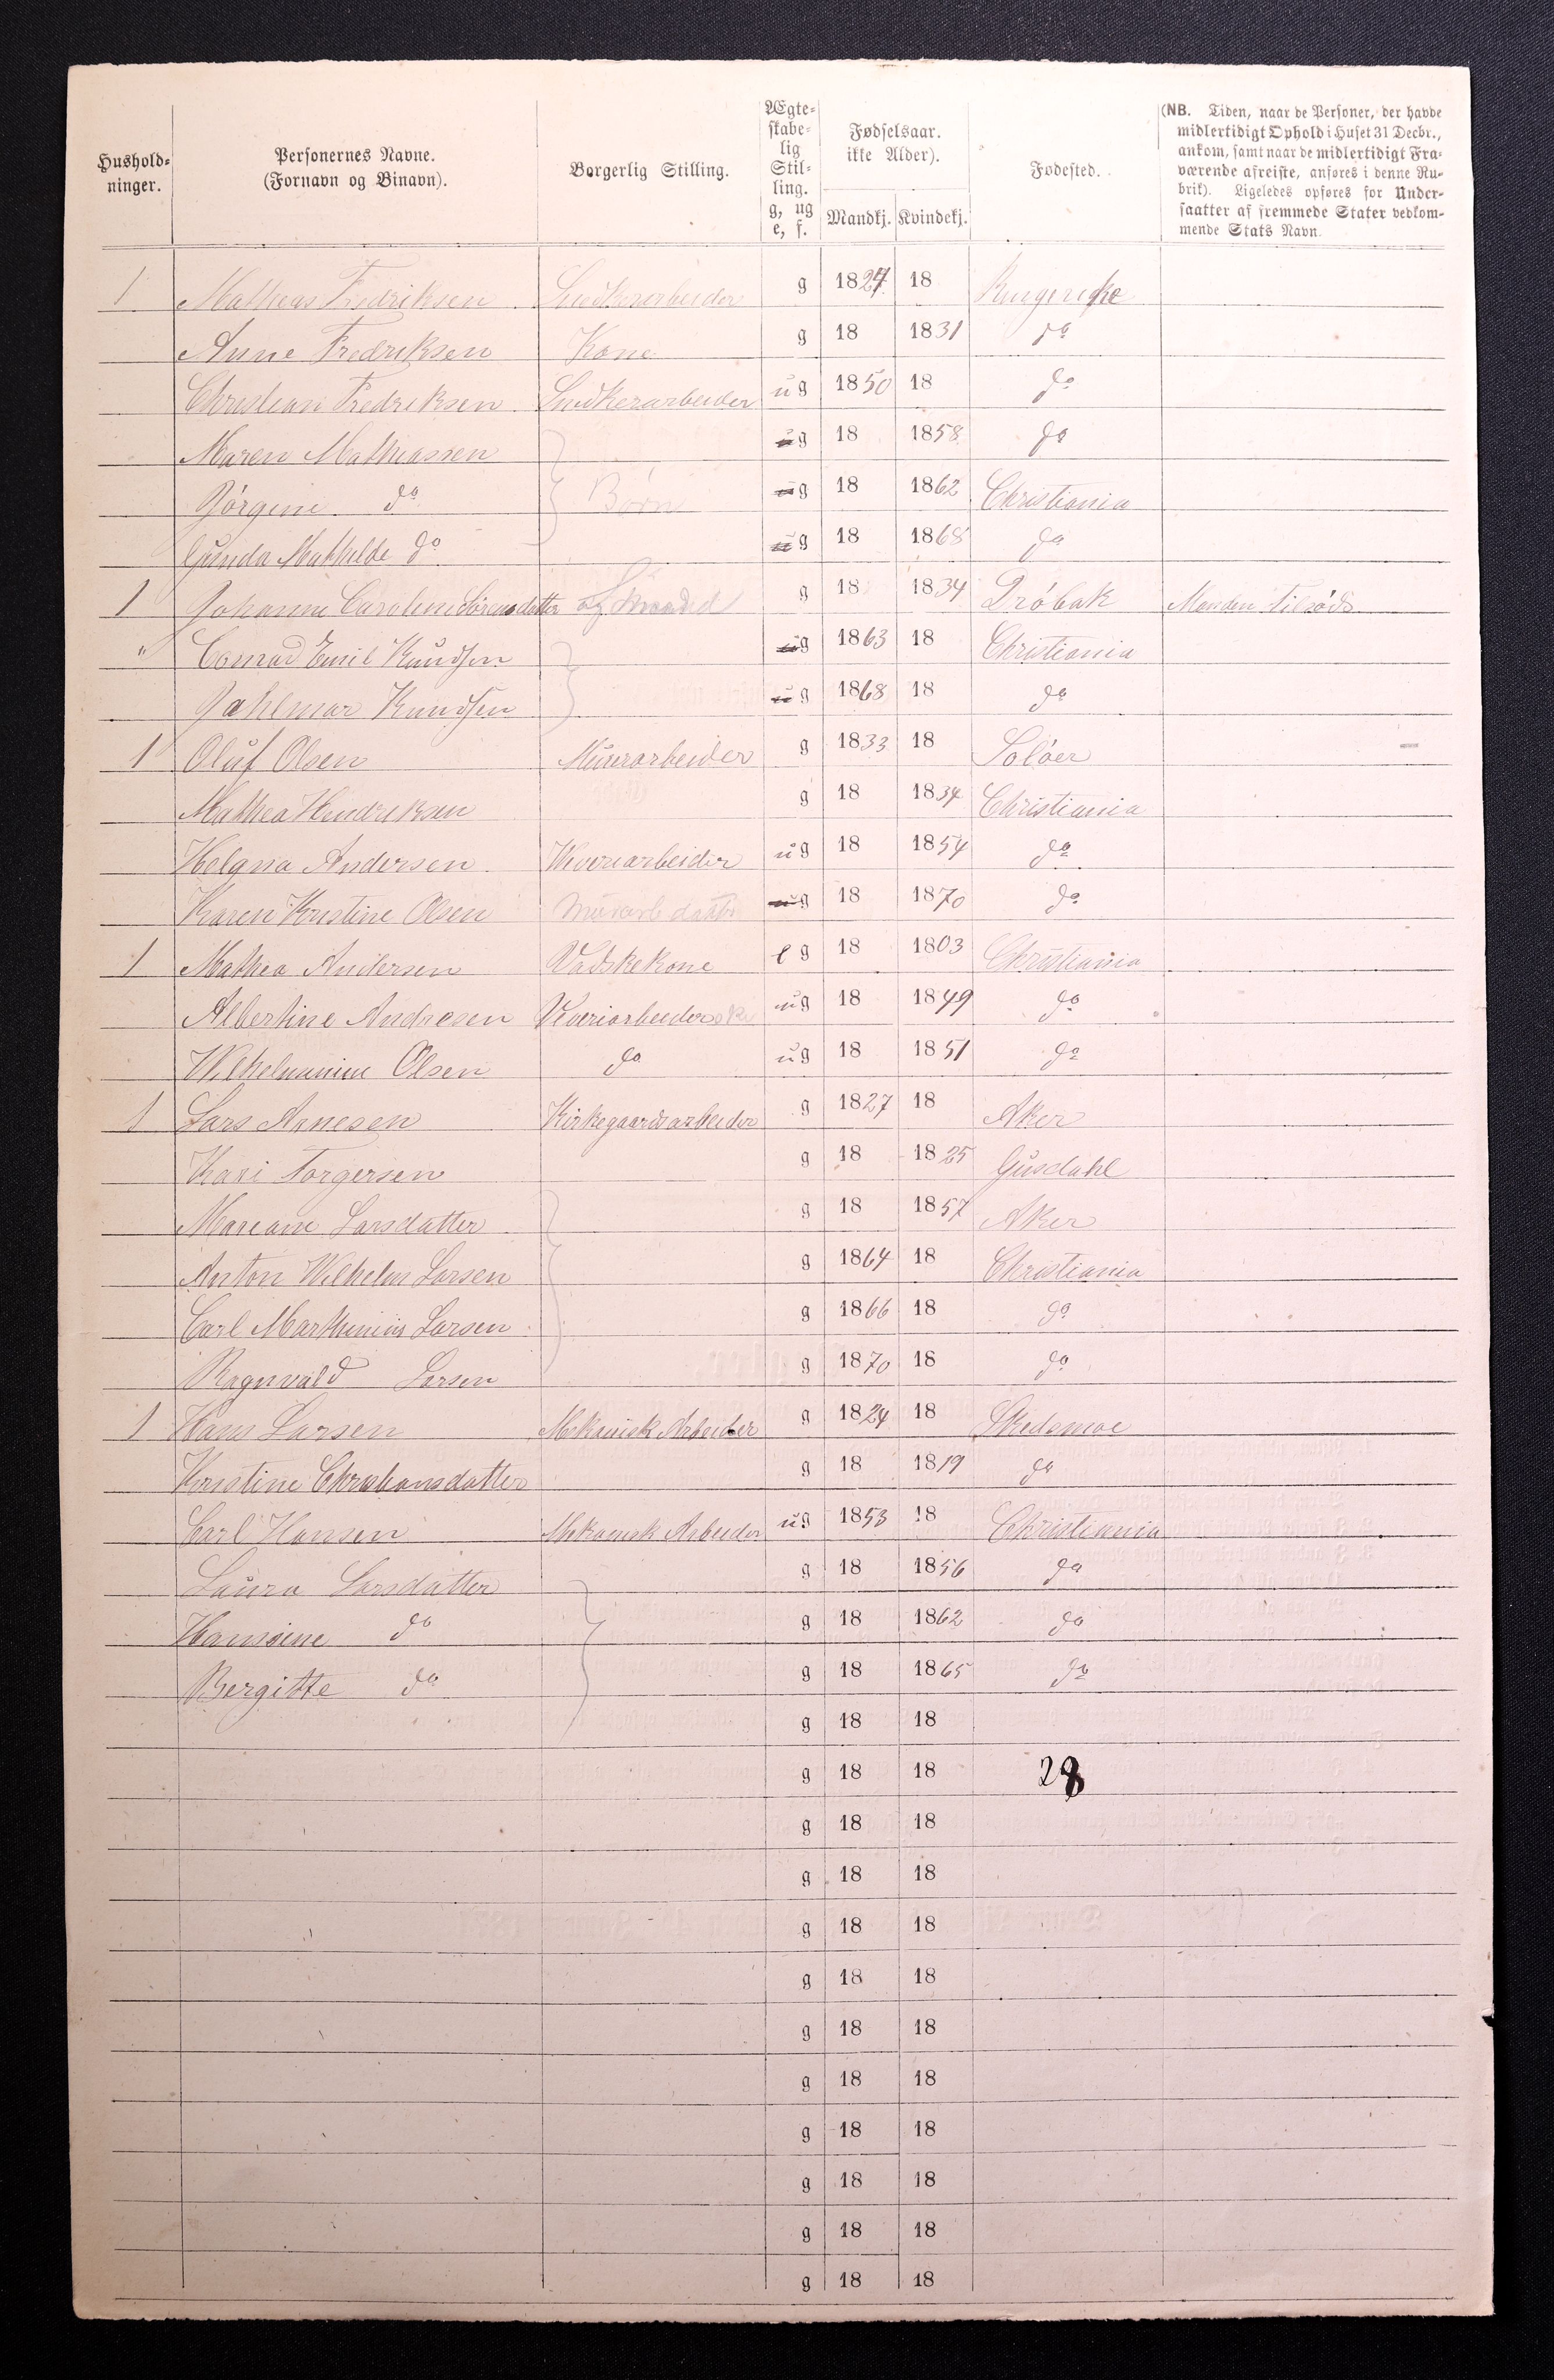 Hushold-
ninger.
Personernes Navne.
(Fornavn og Binavn).
Borgerlig Stilling.
Ægte-
skabe-
lig
Stil-
ling.
g, ug
e, f.
Fødselsaar.
ikke Alder).
Mandkj. Kvindekj.
Fødested.
(NB. Tiden, naar de Personer, der havde
midlertidigt Ophold i Huset 31 Decbr.,
ankom, samt naar de midlertidigt Fra-
værende afreiste, anføres i denne Ru-
brik). Ligeledes opføres for Under-
saatter af fremmede Stater vedkom-
mende Stats Navn.
1 Mathias Fredriksen Snedkerarbeider g 1827 18 Ringerike
Anne Fredriksen Kone g 18 1831 do
Christian Fredriksen Snedkerarbeider ug 1850 18 do
Maren Mathiassen g 18 1858 do
Jörgine do Börn g 18 1862 Christiania
Gunda Mathilde do g 18 1868 do
1 Johanne Caroline Sörensdatter g 18 1834 Dröbak Manden tilsøds
" Conrad Emil Knudsen g 1863 18 Christiania
Jahlmar Knudsen g 1868 18 do
1 Oluf Olsen Murarbeider g 1833 18 Solöer
Mathea Hendriksen g 18 1834 Christiania
Helgna Andersen Væveriarbeider ug 18 1854 do
Karen Kristine Olsen Murarb datter g 18 1870 do
1 Mathea Andersen Vadskekone e g 18 1803 Christiania
Albertine Andresen Veveriarbeiderske ug 18 1849 do
Wilhelmine Olsen do ug 18 1851 do
1 Lars Arnesen Kirkegaardsarbeider g 1827 18 Aker
Kari Torgersen g 18 1825 Gusdahl
Mariane Larsdatter g 18 1857 Aker
Anton Wilhelm Larsen g 1864 18 Christiania
Carl Marthinius Larsen g 1866 18 do
Ragnvald Larsen g 1870 18 do
1 Hans Larsen Mekanisk Arbeider g 1824 18 Skedsmoe
Kristine Christiansdatter g 18 1819 do
Carl Hansen Mekanisk Arbeider ug 1853 18 Christiania
Laura Larsdatter g 18 1856 do
Hansine do g 18 1862 do
Bergitte do g 18 1865 do
g 18 18
g 18 18 28
g 18 18
g 18 18
g 18 18
g 18 18
g 18 18
g 18 18
g 18 18
g 18 18
g 18 18
g 18 18